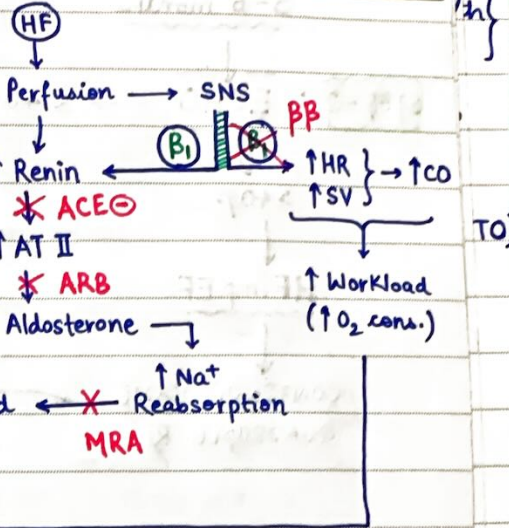 HF
Perfusion → SNS
ββ
β₁ β₁
Renin ↑HR } → ↑CO
↑SV
ACE⊖
↑ AT II
TO
ARB
↑ Workload
(↑ O₂ cons.)
Aldosterone
↑ Na⁺
Reabsorption
MRA